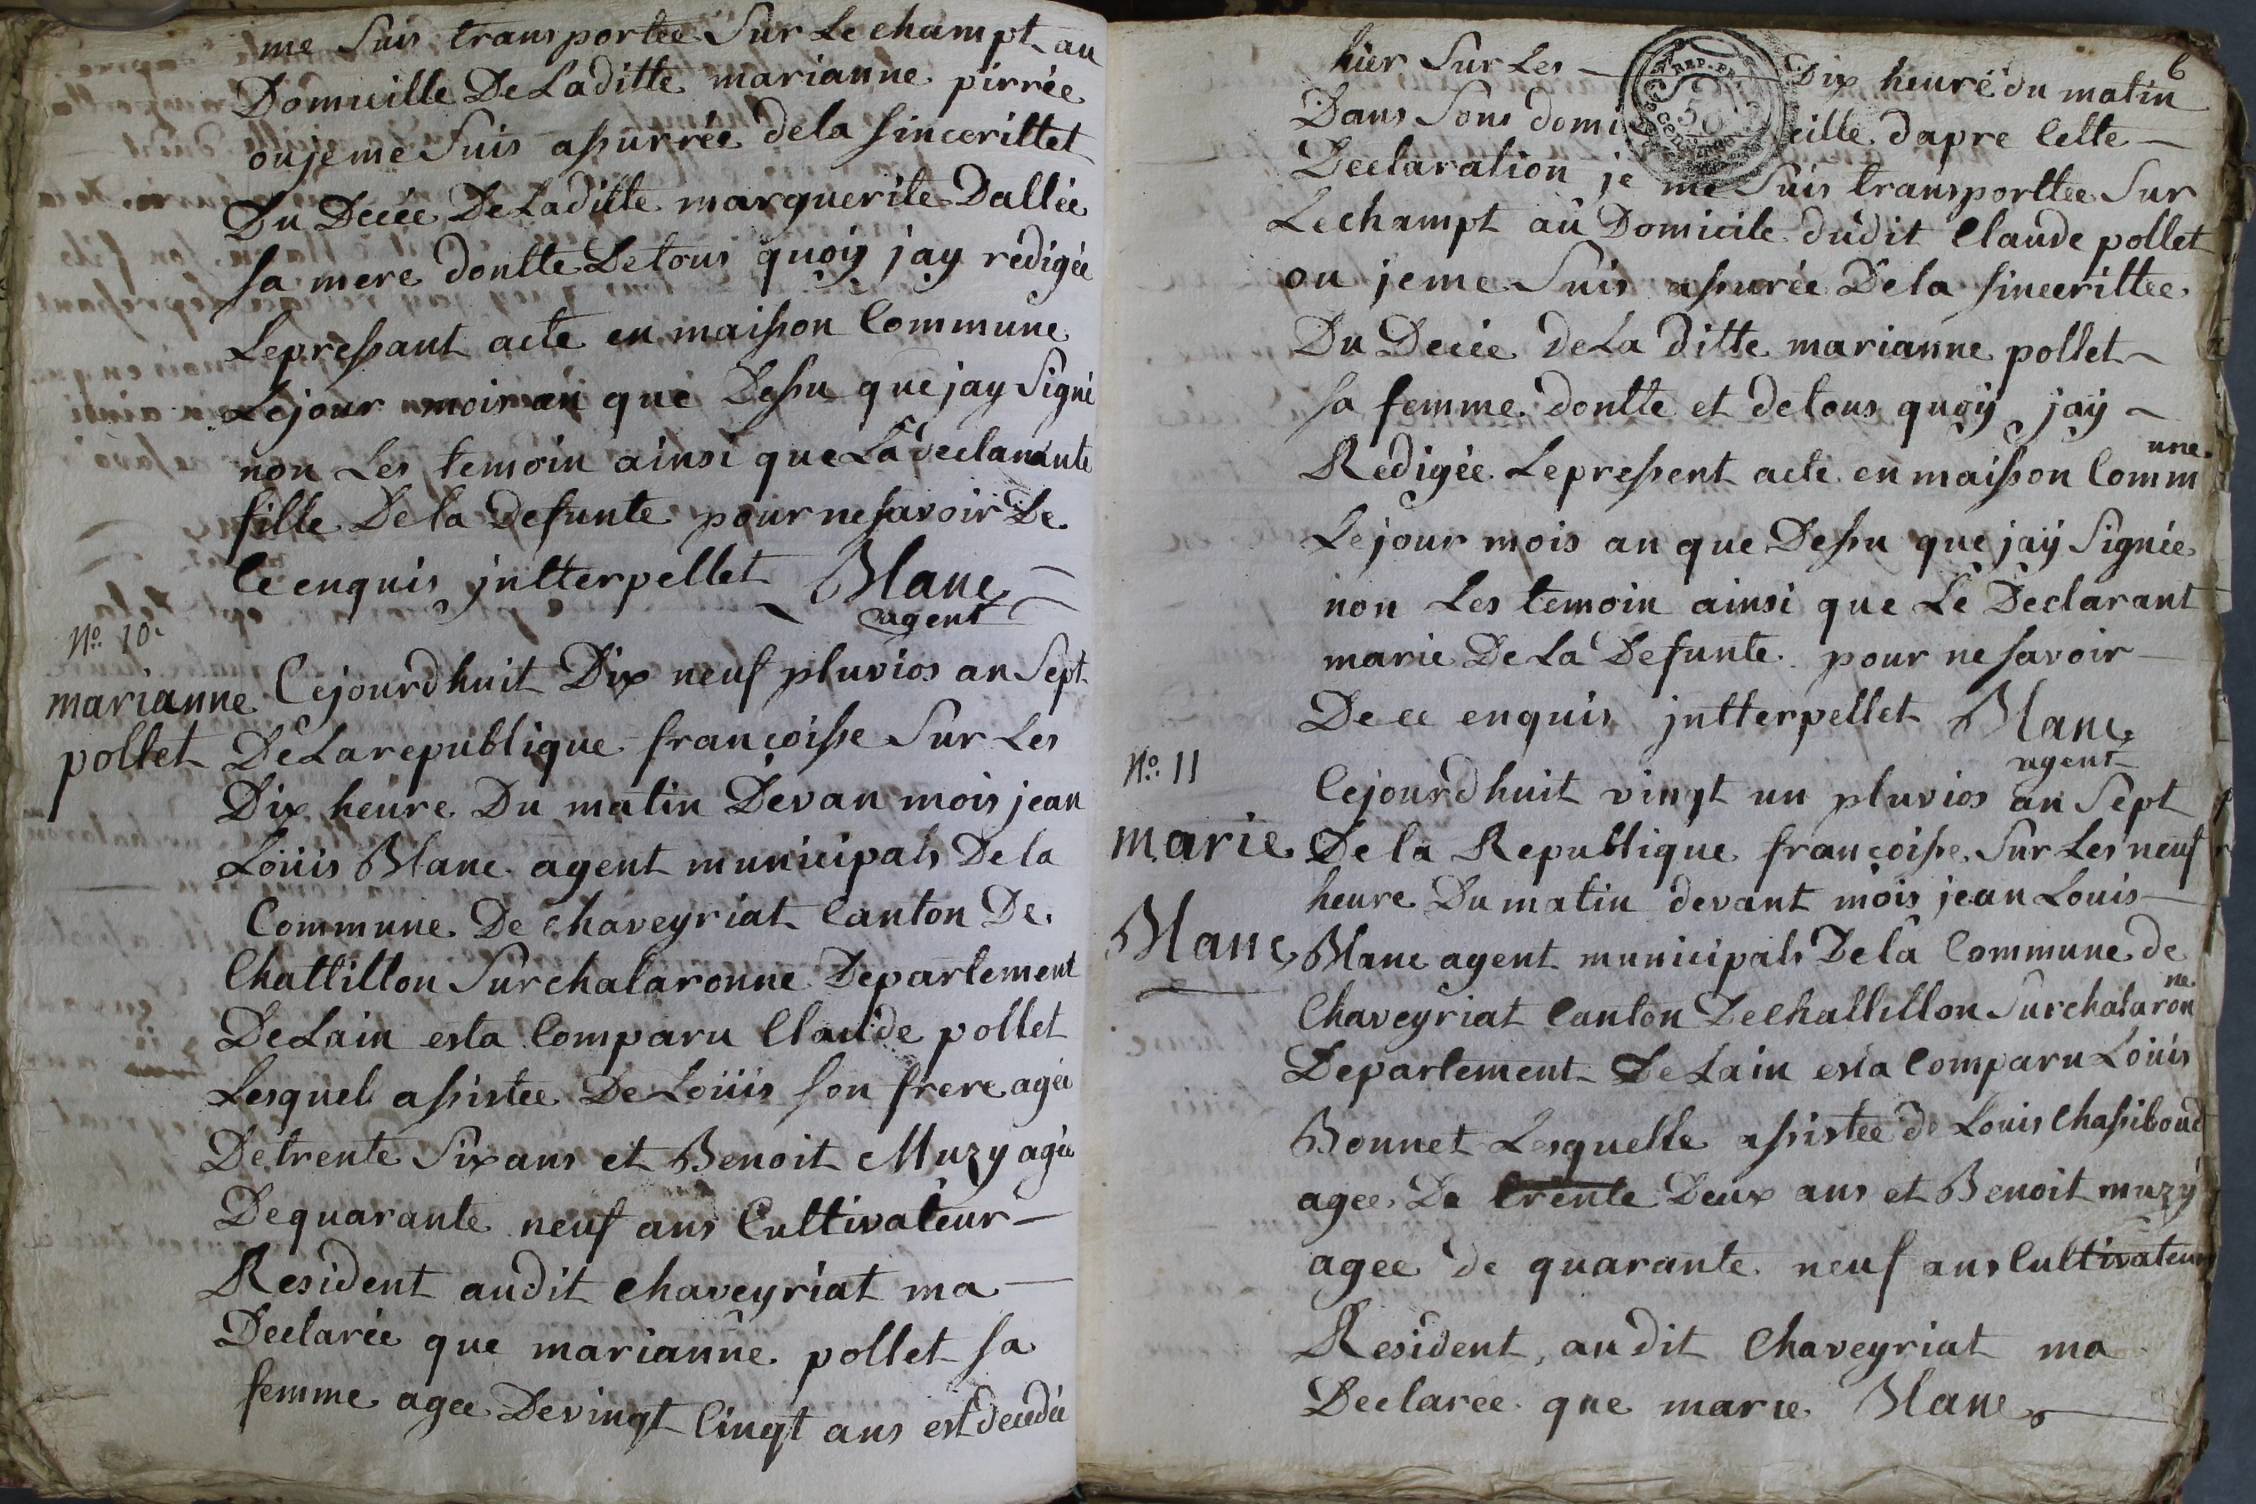 me Suis transportée Sur Le champt au
Domicille De Laditte marianne pirrée
ou je me Suis assurrée de la sincerittet
Du Décée De Laditte marguerite Dallée
sa mere dontte De tous quoiy jay redigée
Le pressant acte en maisson Commune
Le jour mois an que Dessu que jay Signé
non Les temoin ainsi que La declarante
fille De la Defunte pour ne savoir De
Ce enquis jntterpellet Blanc
agent
No. 10.
marianne
pollet
Cejourdhuit Dix neuf pluvios an Sept
De La republique françoisse Sur Les
Dix heure Du matin Devan mois jean
Loüis Blanc agent municipals De la
Commune De chaveyriat Canton De
Chattillon Sur chalaronne Departement
De Lain esta Comparu Claude pollet
Lesquel assistee De Loüis son frere agée
De trente Six ans et Benoit Muzy agée
De quarante neuf ans Cultivateur
Resident audit chaveyriat ma
Declarée que marianne pollet sa
femme agee De vingt Cinqt ans est decedée
6
hier Sur Les Dix heure du matin
Dans Sons domicille dapre Cette
Declaration je me Suis transporttee Sur
Le champt au Domicile dudit Claude pollet
ou je me Suis assurée De la sincerittee
Du Decée de La ditte marianne pollet
sa femme dontte et de tous quoy jay
Redigée Le pressent acte en maisson Commune
Le jour mois an que Dessu que jaÿ Signée
non Les temoin ainsi que Le Declarant
marie De La Defunte pour ne savoir
De ce enquis jntterpellet Blanc
agent
No. 11
marie
Blanc
Cejourdhuit vingt un pluvios an Sept
De la Republique françoisse Sur Les neuf
heure Du matin devant mois jean Louis
Blanc agent municipals De la Commune de
Chaveyriat Canton De Chattillon Sur chalaronne
Departement De Lain esta Comparu Loüis
Bonnet Lesquelle assistee de Louis Chassiboud
agee De trente Deux ans et Benoit muzÿ
agee de quarante neuf ans Cultivateur
Resident audit Chaveyriat ma
Declaree que marie Blanc